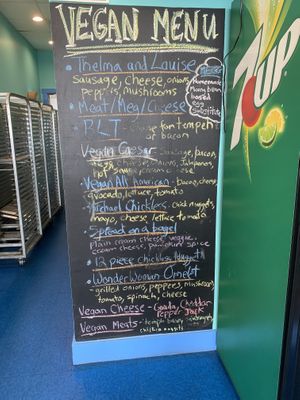 VEGAN MENU
• Thelma and Louise
Sausage, cheese, onions,
peppers, mushrooms
• Meat/Meg/Cheese
• BLT - tempeh
or bacon
Vegan Caesar - Sausage, bacon,
cheese, onions, Jalapenos,
hot sauce
• Vegan All American - bacon, cheese,
avocado, lettuce, tomato
• Michael Chicklers - chick nuggets,
mayo, cheese lettuce tomato
• Spread on a bagel
Plain cream cheese, veggie
cream cheese, pumpkin spice
• 12 piece chickless nuggets
• Wonder Woman Omelet
- grilled onions, peppers, mushrooms,
tomato, spinach, cheese
Vegan Cheese - Gouda, Cheddar
Pepper Jack
Vegan Meats - tempeh bacon, sausages,
chicken nuggets
Homemade
Mung bean
based
egg
Substitute
7UP